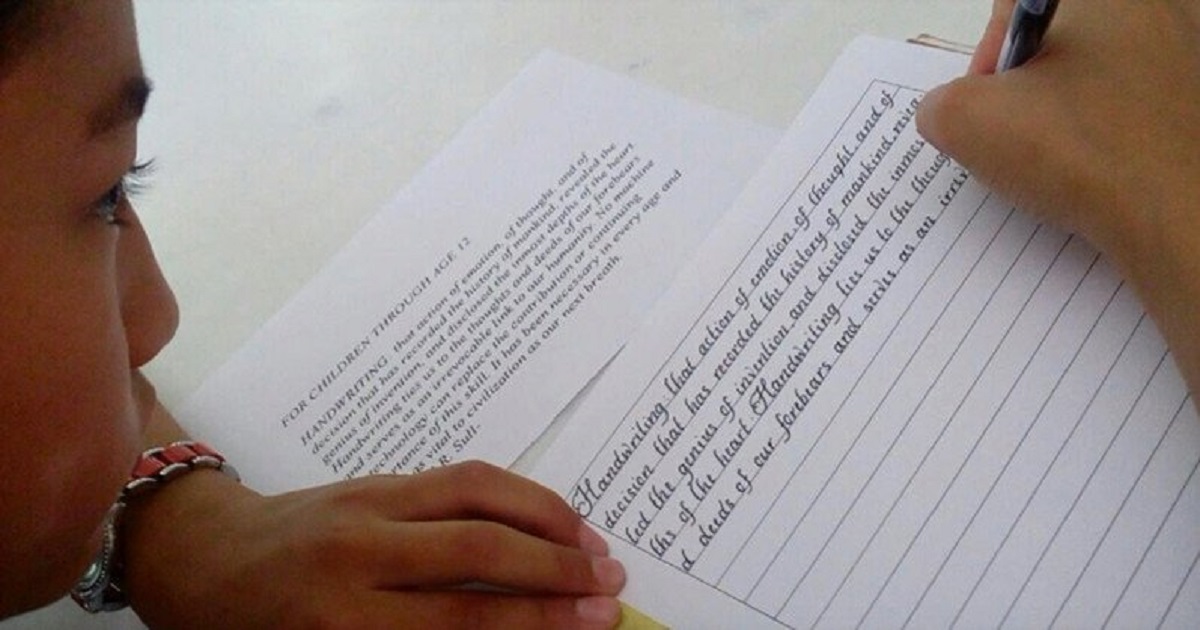 FOR CHILDREN THROUGH AGE 12
HANDWRITING that action of emotion, of thought, and of
decision that has recorded the history of mankind, revealed the
genius of invention, and disclosed the inmost depths of the heart
Handwriting ties us to the thoughts and deeds of our forebears
and serves as an irrevocable link to our humanity. No machine
technology can replace the contribution or continuing
rtance of this skill. It has been necessary in every age and
as vital to civilization as our next breath.
R. Sull.
Handwriting that action of emotion of thought and of
decision that has recorded the history of mankind
led the genius of invention and disclosed the inmos
ths of the heart Handwriting ties us to the though
d deeds of our forebears and serves as an